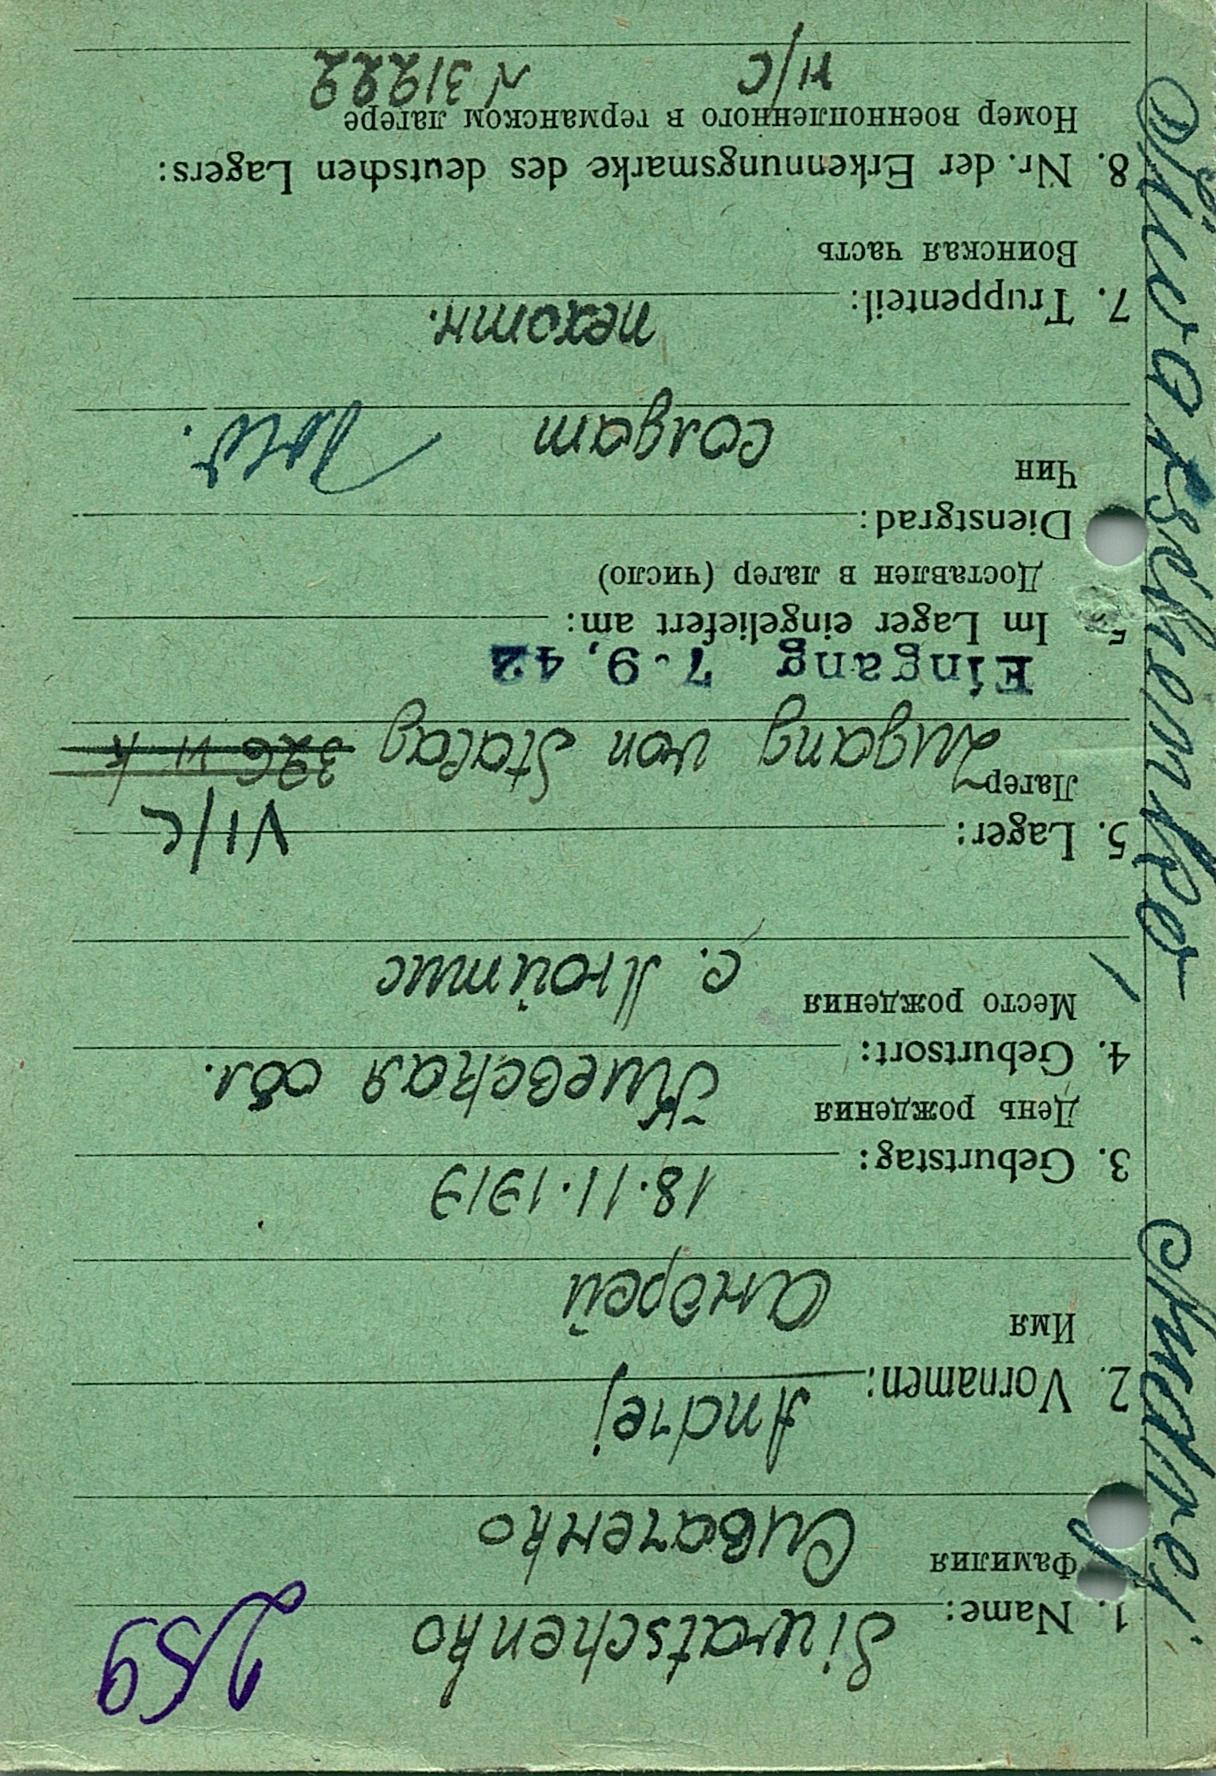 Siwatschenko, Andrej
259
1. Name: Siwatschenko
Фамилия Сиваченко
2. Vornamen: Andrej
Имя Андрей
3. Geburtstag: 18.11.1919
День рождения
Киевская обл.
4. Geburtsort:
Место рождения
с.
5. Lager: VI/C
Лагер
Zugang von Stalag 326 VI K
Eingang 7.9.42
5 Im Lager eingeliefert am:
Доставлен в лагер (число)
Dienstgrad:
Чин
солдат
7. Truppenteil: пехотн.
Воинская часть
8. Nr. der Erkennungsmarke des deutschen Lagers:
Номер военнопленного в германском лагере
N 31222